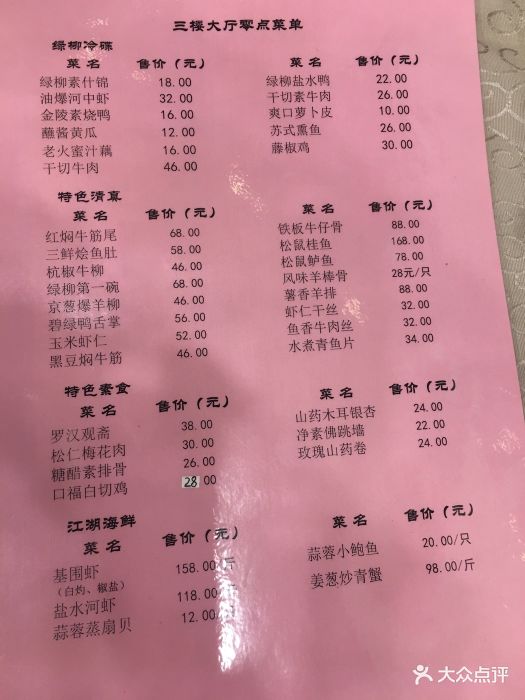 三楼大厅零点菜单
绿柳冷碟
菜名 售价（元） 菜名 售价（元）
绿柳素什锦 18.00 绿柳盐水鸭 22.00
油爆河中虾 32.00 干切素牛肉 26.00
金陵素烧鸭 16.00 爽口萝卜皮 10.00
蘸酱黄瓜 12.00 苏式熏鱼 26.00
老火蜜汁藕 16.00 藤椒鸡 30.00
干切牛肉 46.00
特色清真
菜名 售价（元） 菜名 售价（元）
红焖牛筋尾 68.00 铁板牛仔骨 88.00
三鲜烩鱼肚 58.00 松鼠桂鱼 168.00
杭椒牛柳 46.00 松鼠鲈鱼 78.00
绿柳第一碗 68.00 风味羊棒骨 28元/只
京葱爆羊柳 46.00 薯香羊排 88.00
碧绿鸭舌掌 56.00 虾仁干丝 32.00
玉米虾仁 52.00 鱼香牛肉丝 32.00
黑豆焖牛筋 46.00 水煮青鱼片 34.00
特色素食
菜名 售价（元） 菜名 售价（元）
罗汉观斋 38.00 山药木耳银杏 24.00
松仁梅花肉 30.00 净素佛跳墙 22.00
糖醋素排骨 26.00 玫瑰山药卷 24.00
口福白切鸡 28.00
江湖海鲜
菜名 售价（元） 菜名 售价（元）
基围虾 158.00/斤 蒜蓉小鲍鱼 20.00/只
（白灼、椒盐）
盐水河虾 118.00/斤 姜葱炒青蟹 98.00/斤
蒜蓉蒸扇贝 12.00/只
大众点评